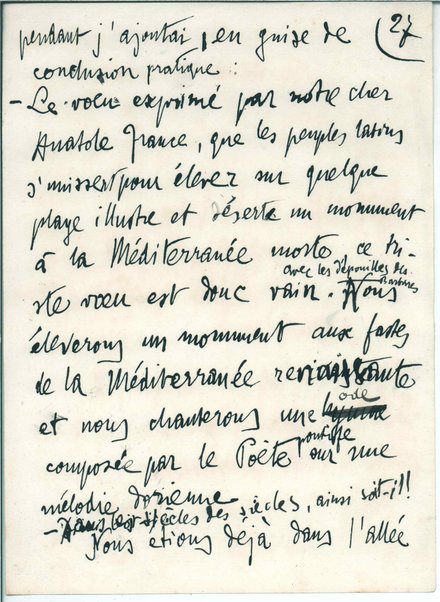 27
pendant j'ajoutai, en guise de
conclusion pratique :
- Le vœu exprimé par notre cher
Anatole France, que les peuples latins
s'unissent pour élever sur quelque
plage illustre et déserte un monument
à la Méditerranée morte, ce tri-
avec les dépouilles des
Barbares
ste vœu est donc vain. Nous
élèverons un monument aux fastes
de la Méditerranée renaissante
ode
et nous chanterons une
pontife
composée par le Poète sur une
mélodie dorienne
- Dans les siècles des siècles, ainsi soit-il !!
Nous étions déjà dans l'allée